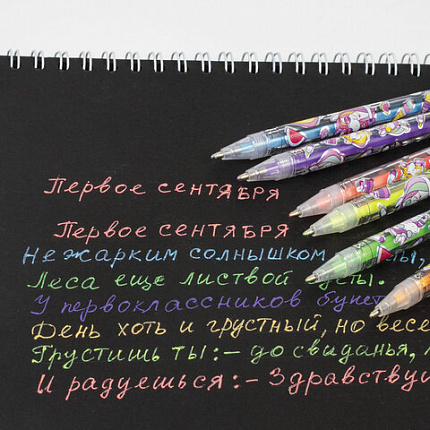 Первое сентября
Первое сентября
Нежарким солнышком
Леса еще листвой
У первоклассников
День хоть и грустный, но
Грустишь ты:– до свиданья,
И радуешься:–